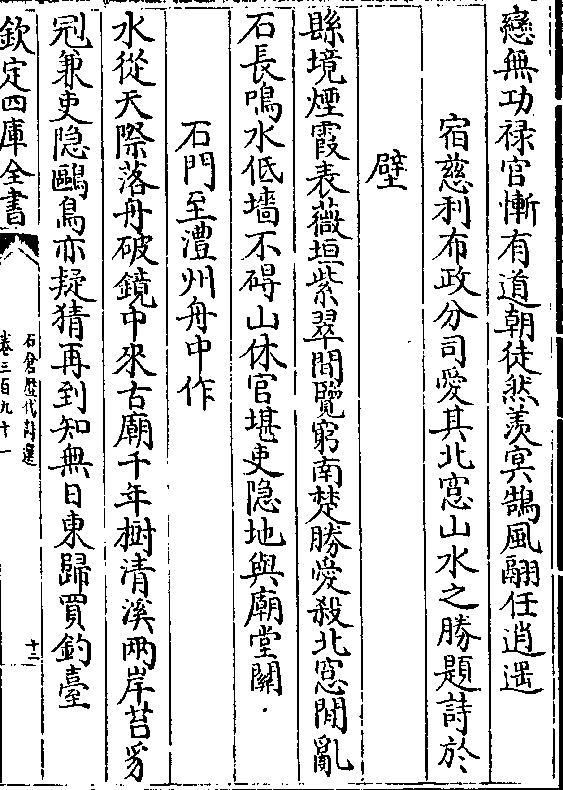 戀無功禄官慚有道朝徒然羨㝠鵠風翮任逍遥
宿慈利布政分司愛其北窓山水之勝題詩於
壁
縣境煙霞表薇垣紫翠間覽窮南楚勝愛殺北窓閒亂
石長鳴水低墻不碍山休官堪吏隐地與廟堂關
石門至澧州舟中作
水從天際落舟破鏡中來古廟千年樹清溪兩岸苔豸
冠兼吏隐鷗鳥亦疑猜再到知無日東歸買釣臺
欽定四庫全書
石倉歷代詩選
卷三百九十一
十二